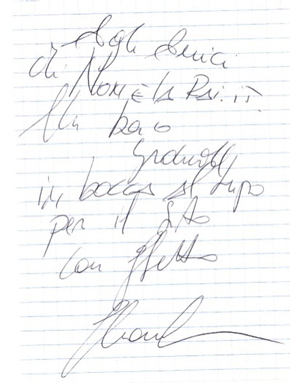 Agli Amici
di Non è la Rai.it
Un bacio
in bocca al lupo
per il sito
con affetto